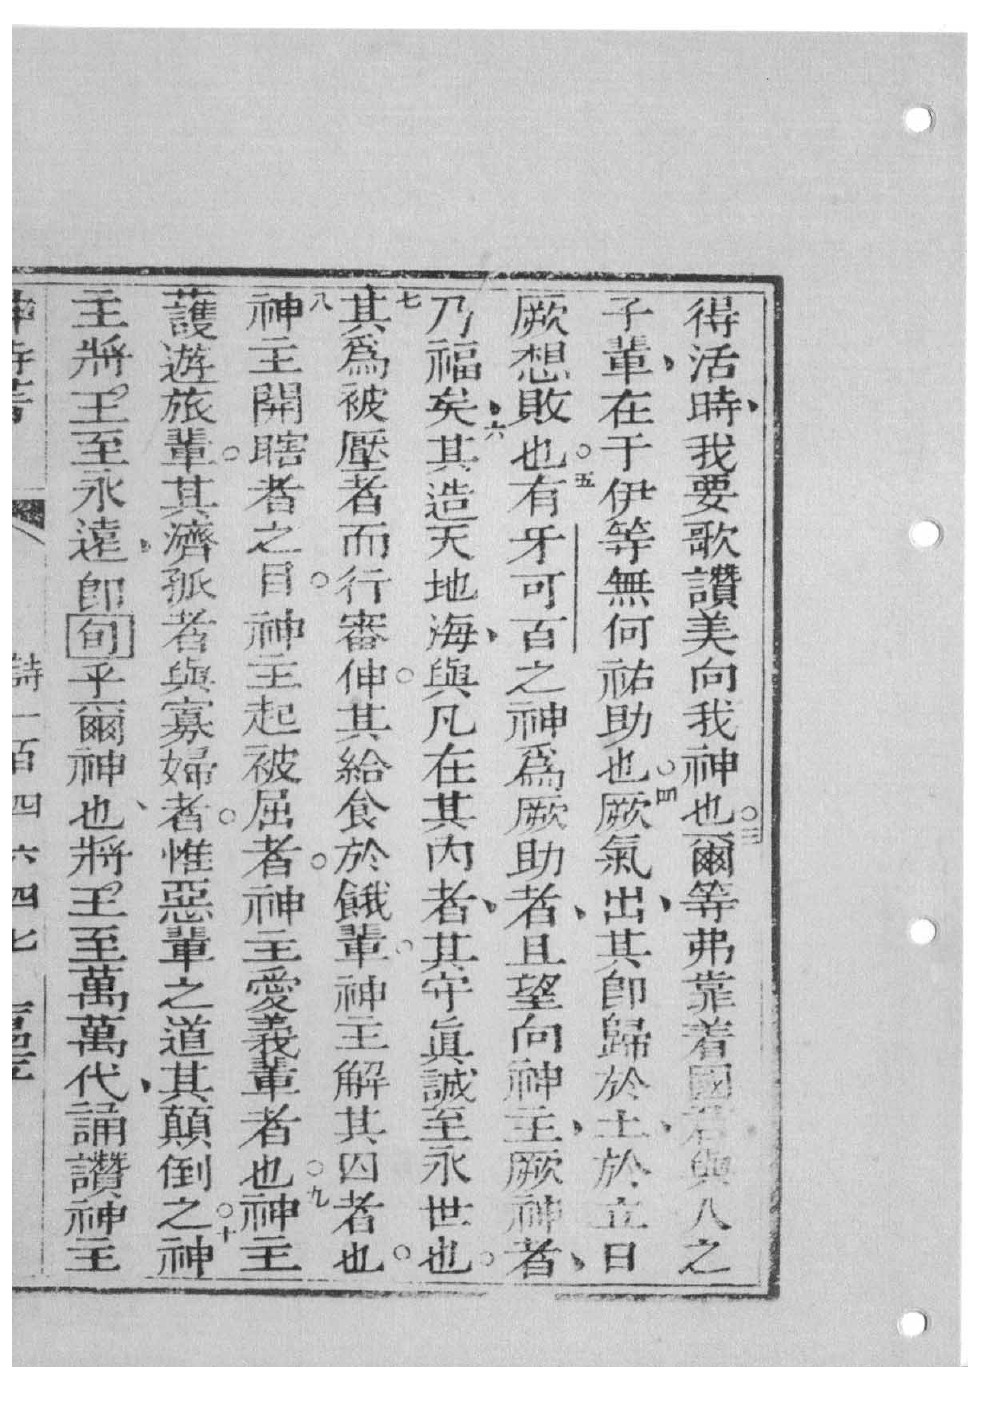 得活時、我要歌讚美向我神也○三爾等弗靠着國君與人之
子輩、在于伊等無何祐助也○四厥氣出、其卽歸於土、於立日
厥想敗也○五有牙可百之神爲厥助者、且望向神主、厥神者、
乃福矣、六其造天地海、與凡在其內者、其守眞誠至永世也○
七其爲被壓者而行審伸○其給食於餓輩○神主解其囚者也○
八神主開瞎者之目○神主起被屈者○神主愛義輩者也○九神主
護遊旅輩○其濟孤者與寡婦者○惟惡輩之道其顛倒之○十神
主將王至永遠、卽旬乎爾神也、將王至萬萬代、誦讚神主
詩一百四六四七